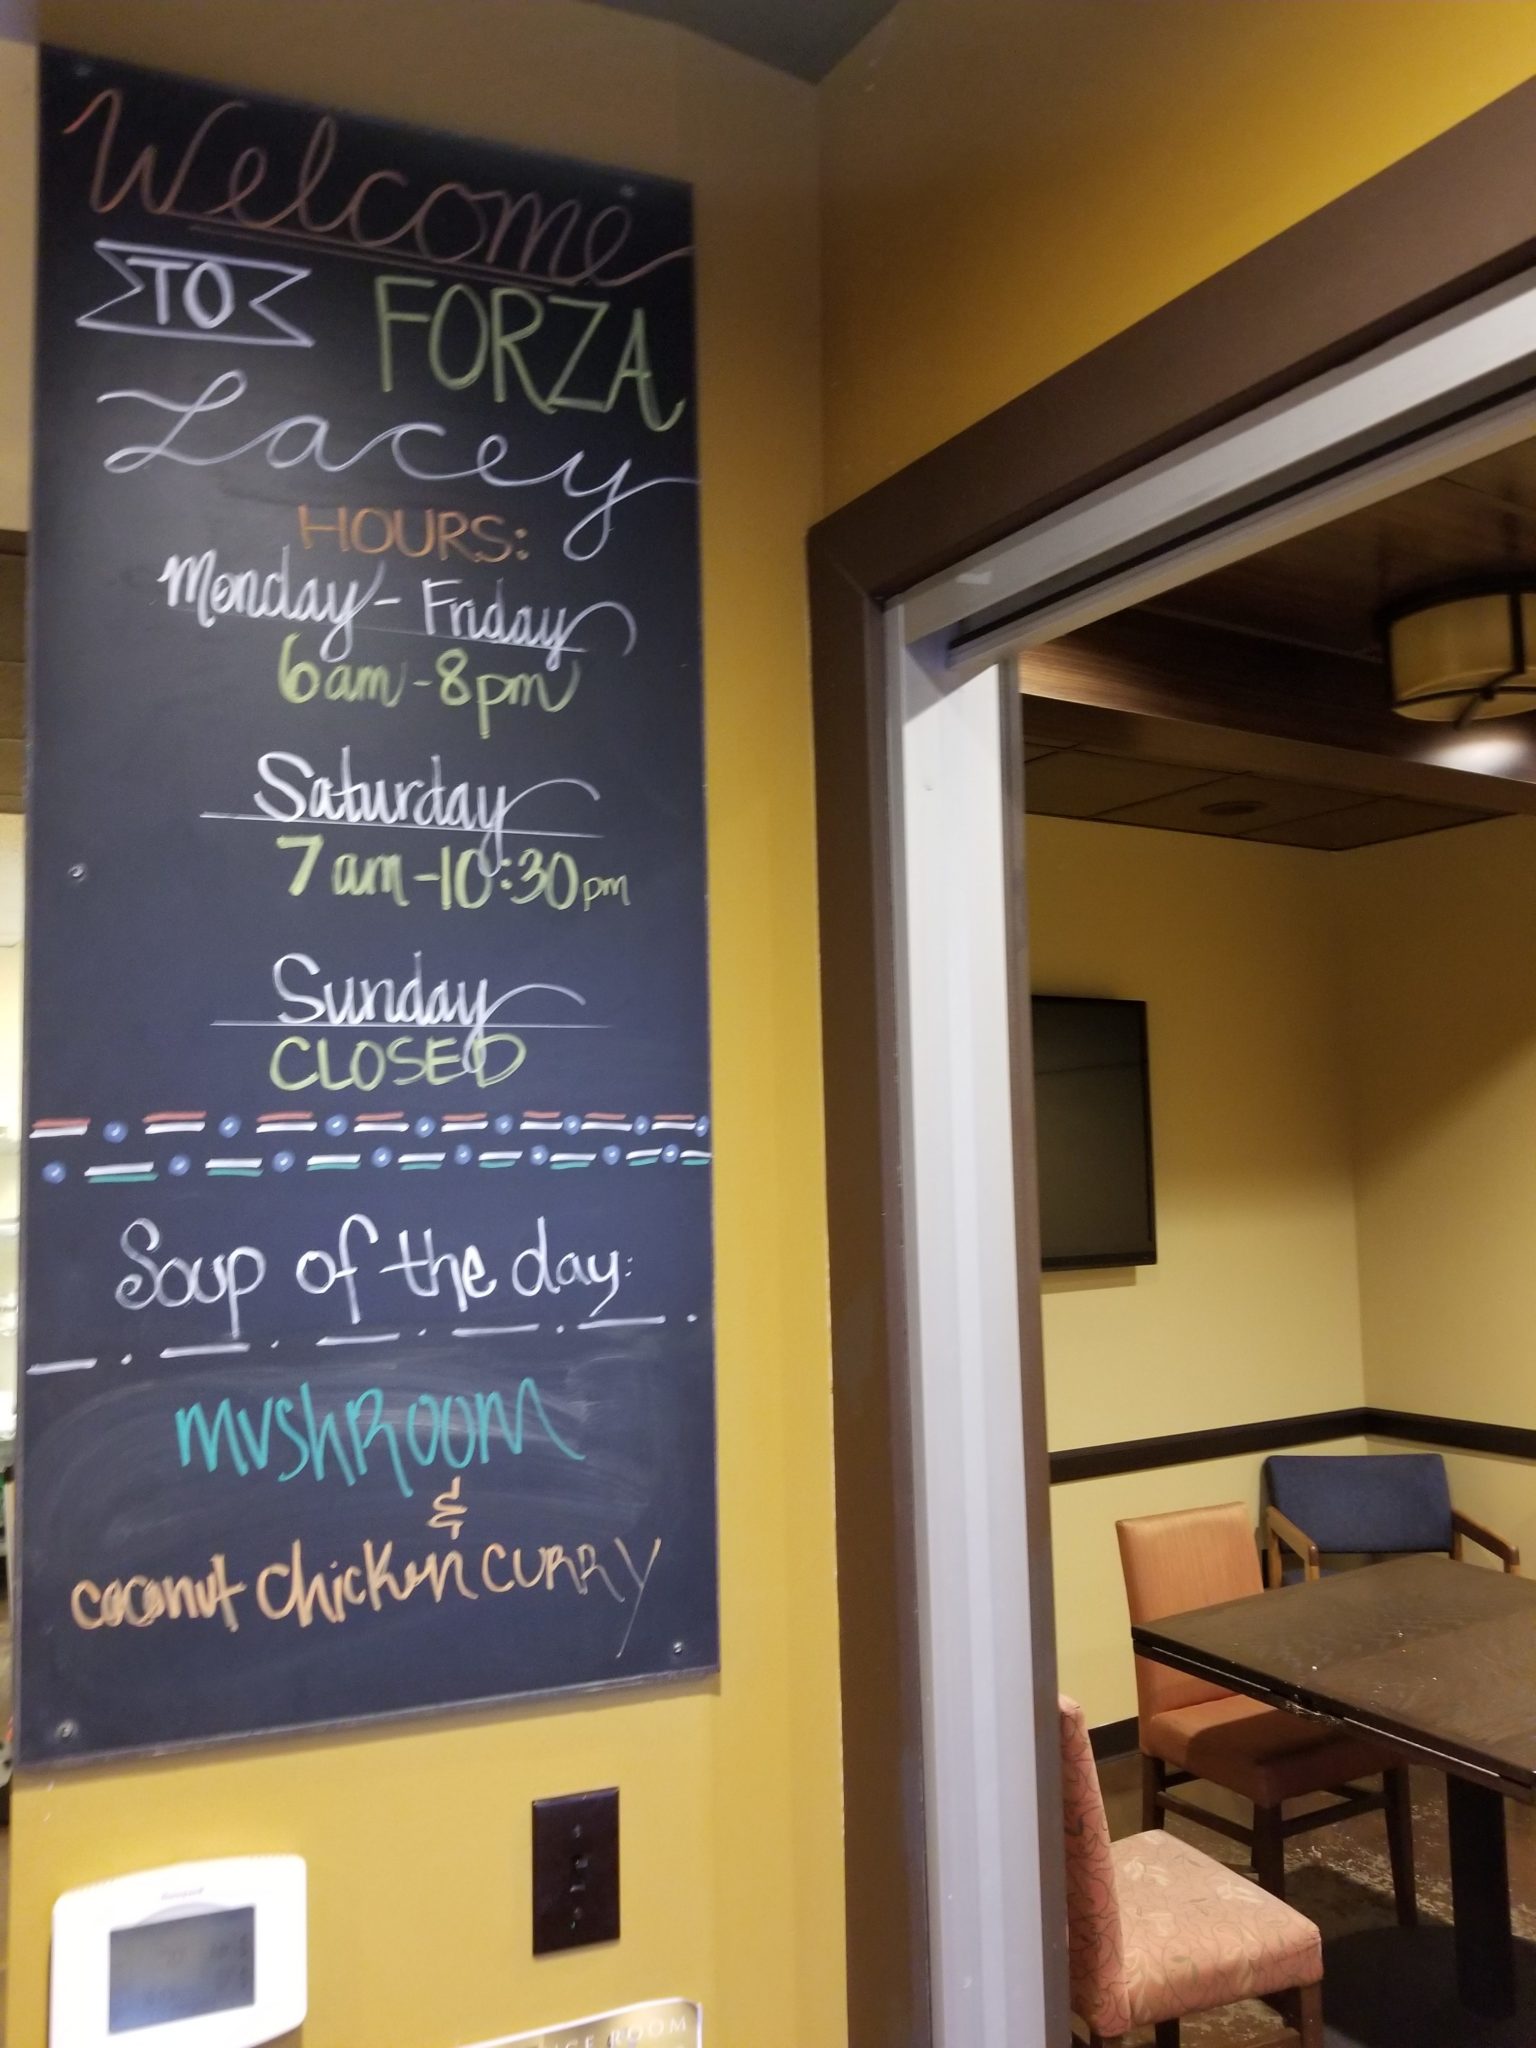 Welcome
TO FORZA
Lacey
HOURS:
Monday - Friday
6am - 8pm
Saturday
7am - 10:30pm
Sunday
CLOSED
Soup of the day:
MUShROOM
&
coconut chicken CURRY
Honeywell
ROOM